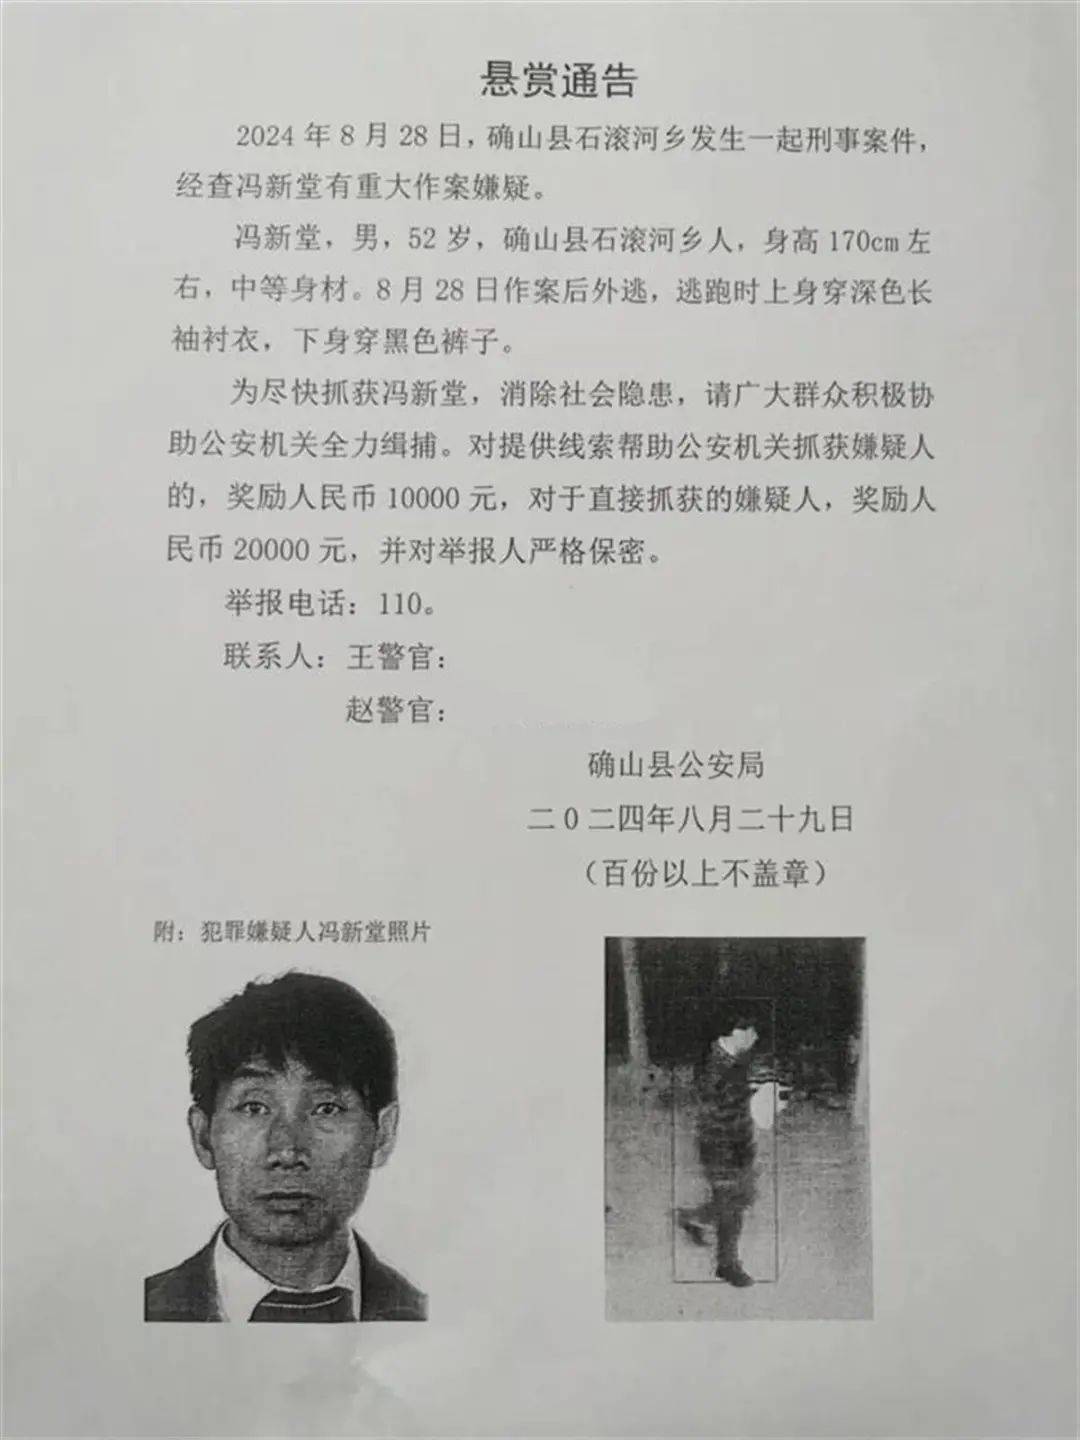 悬赏通告
2024年8月28日，确山县石滚河乡发生一起刑事案件，
经查冯新堂有重大作案嫌疑。
冯新堂，男，52岁，确山县石滚河乡人，身高170cm左
右，中等身材。8月28日作案后外逃，逃跑时上身穿深色长
袖衬衣，下身穿黑色裤子。
为尽快抓获冯新堂，消除社会隐患，请广大群众积极协
助公安机关全力缉捕。对提供线索帮助公安机关抓获嫌疑人
的，奖励人民币10000元，对于直接抓获的嫌疑人，奖励人
民币20000元，并对举报人严格保密。
举报电话：110。
联系人：王警官：
赵警官：
确山县公安局
二0二四年八月二十九日
（百份以上不盖章）
附：犯罪嫌疑人冯新堂照片